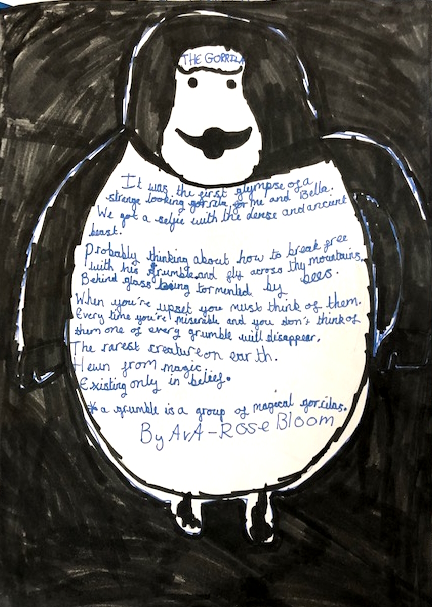 THE GORRILA
It was the first glympse of a
strange looking gorrila for me and Bella.
We got a selfie with the dense and ancient
beast.
Probably thinking about how to break free
with his grumble and fly across thy mountains
Behind glass being tormented by bees.
When you're upset you must think of them.
Every time you're miserable and you don't think of
them one of every grumble will disappear.
The rarest creature on earth.
Hewn from magic..
Existing only in belief.
*a grumble is a group of magical gorrilas.
By AvA-Rose Bloom